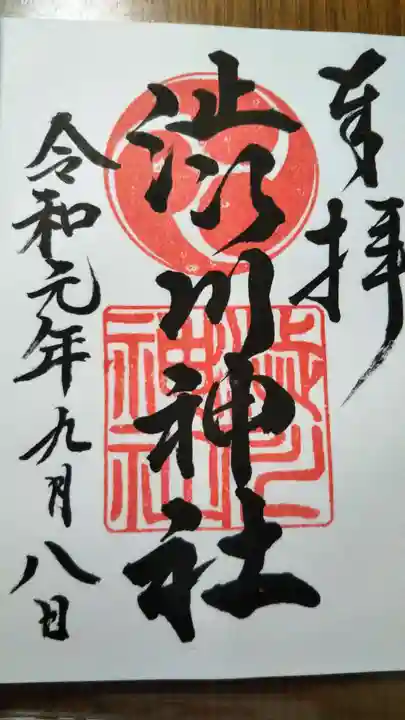 奉拝
渋川神社
令和元年九月八日
渋川
神社